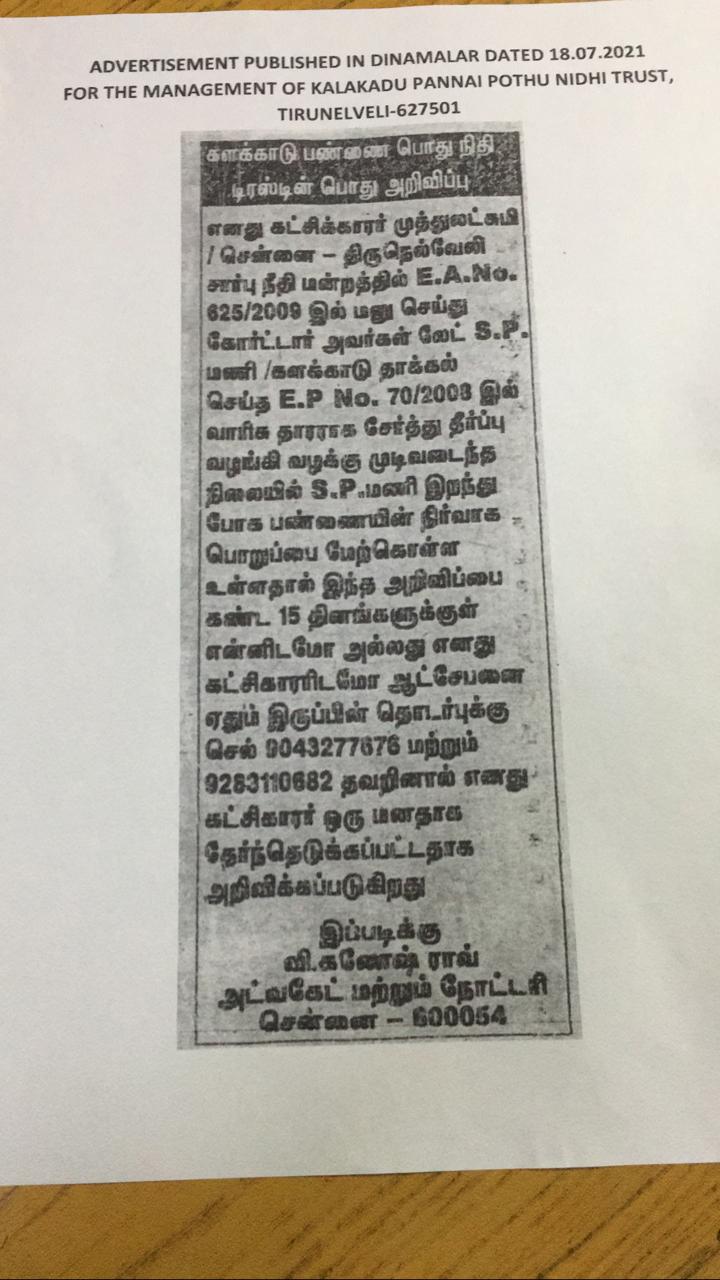 ADVERTISEMENT PUBLISHED IN DINAMALAR DATED 18.07.2021
FOR THE MANAGEMENT OF KALAKADU PANNAI POTHU NIDHI TRUST,
TIRUNELVELI-627501
களக்காடு பண்ணை பொது நிதி
டிரஸ்டின் பொது அறிவிப்பு
எனது கட்சிக்காரர் முத்துலட்சுமி
/ சென்னை – திருநெல்வேலி
சார்பு நீதி மன்றத்தில் E.A.No.
625/2009 இல் மனு செய்து
கோர்ட்டார் அவர்கள் லேட் S.P.
மணி /களக்காடு தாக்கல்
செய்த E.P No. 70/2008 இல்
வாரிசு தாரராக சேர்த்து தீர்ப்பு
வழங்கி வழக்கு முடிவடைந்த
நிலையில் S.P.மணி இறந்து
போக பண்ணையின் நிர்வாக
பொறுப்பை மேற்கொள்ள
உள்ளதால் இந்த அறிவிப்பை
கண்ட 15 தினங்களுக்குள்
என்னிடமோ அல்லது எனது
கட்சிகாரரிடமோ ஆட்சேபனை
ஏதும் இருப்பின் தொடர்புக்கு
செல் 9043277676 மற்றும்
9283110682 தவறினால் எனது
கட்சிகாரர் ஒரு மனதாக
தேர்ந்தெடுக்கப்பட்டதாக
அறிவிக்கப்படுகிறது
இப்படிக்கு
வி.கணேஷ் ராவ்
அட்வகேட் மற்றும் நோட்டரி
சென்னை – 600054